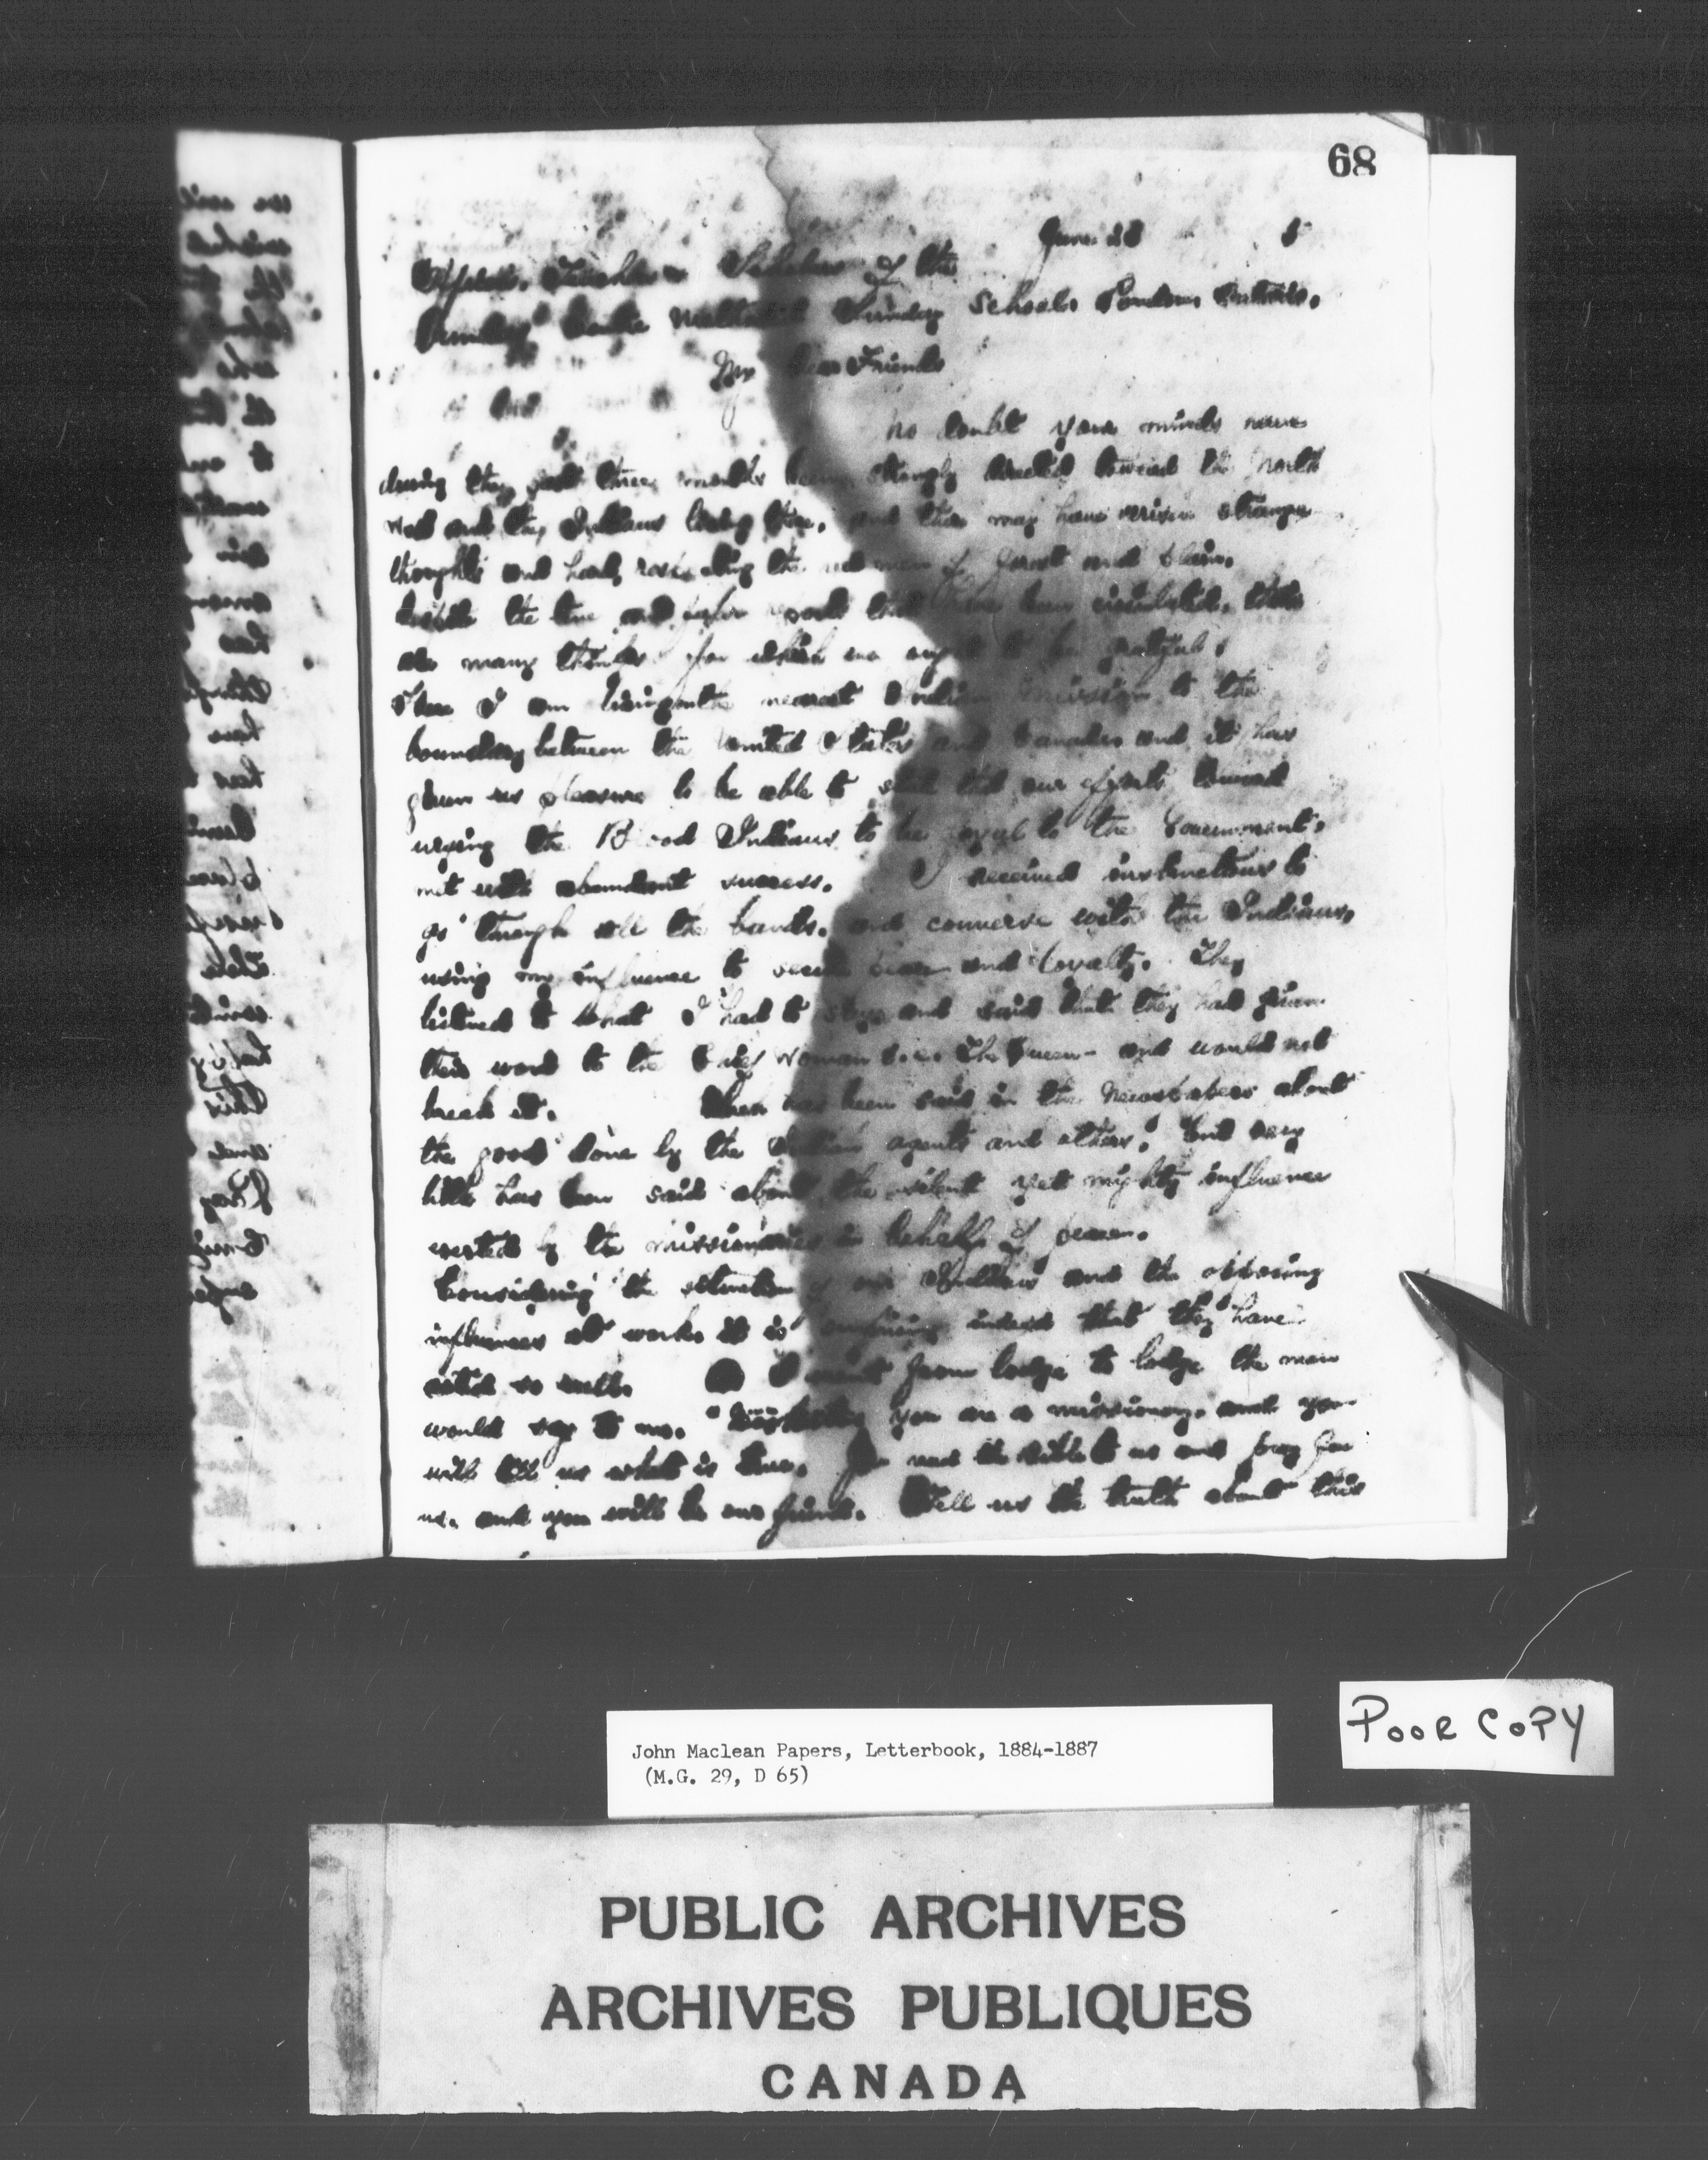 68
June 28 5
Officers, Teachers Scholars of the
Centre Methodist Sunday School, London, Ontario.
My dear Friends
No doubt your minds have
during the past three months been strongly directed toward the North
West and the Indians living there, and there may have arisen strange
thoughts and hard, respecting the red men of forest and plain.
Despite the true and false reports that have been circulated, there
are many things for which we ought to be grateful.
Here I am living on the nearest Indian Mission to the
boundary between the United States and Canada and it has
given us pleasure to be able to state that our efforts toward
urging the Blood Indians to be loyal to the Government,
met with abundant success. I received instructions to
go through all the bands, and converse with the Indians,
using my influence to secure peace and loyalty. They
listened to what I had to say and said that they had given
their word to the Chief Woman i.e. The Queen - and would not
break it. Much has been said in the Newspapers about
the good done by the Indian agents and others, but very
little has been said about the silent yet mighty influence
exerted by the missionaries in behalf of peace.
Considering the situation of our Indians and the opposing
influences at work, it is indeed that they have
acted so well. I went from lodge to lodge the men
would say to me. " you are a missionary, and you
will tell us what is true. You read the bible to us and pray for
us, and you will be our friend. Tell us the truth about this
POOR COPY
John Maclean Papers, Letterbook, 1884-1887
(M.G. 29, D 65)
PUBLIC ARCHIVES
ARCHIVES PUBLIQUES
CANADA